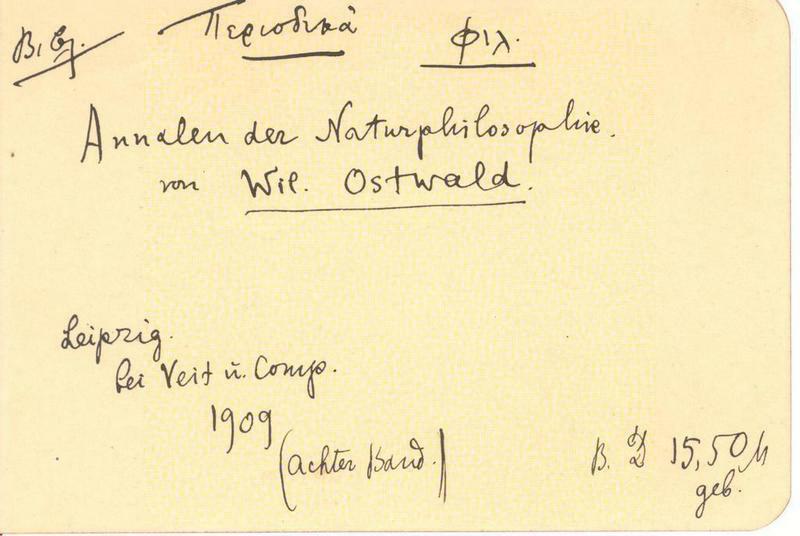 Βιβλ. Περιοδικά Φιλ.
Annalen der Naturphilosophie.
von Wil. Ostwald.
Leipzig.
bei Veit u. Comp.
1909
(achter Band.)
B. 15,50 M
geb.